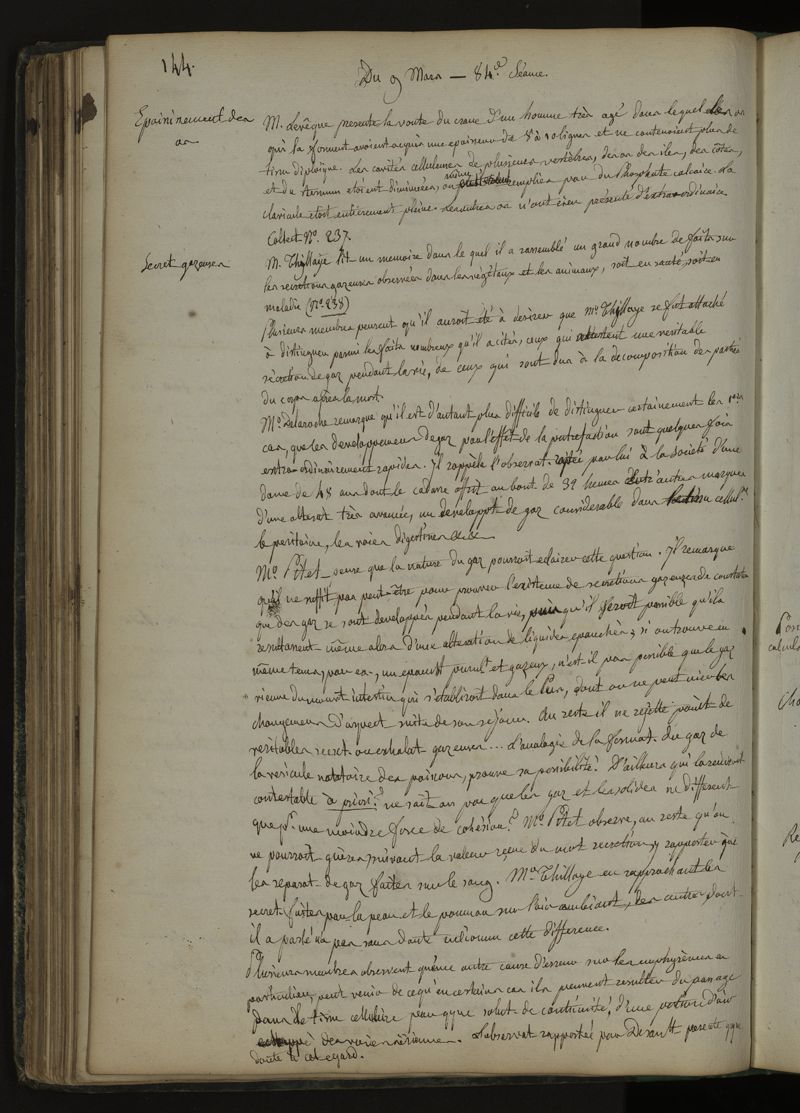 144.
Du 9 Mars — 84.e Séance.
Epaississement des os
M. Levêque presente la voute du crane d'un homme très agé dans lequel les os
qui la forment avoient acquis une epaisseur de 8 à 10 lignes et ne contenoient plus de
tissu diploique. Les cavités celluleuses de plusieurs vertèbres, des os des iles, des côtes,
et du sternum etoient diminuées, ou même remplies par du phosphate calcaire. La
clavicule etoit entierement pleine. les autres os n'ont rien présenté d'extraordinaire
Collect N.o 237.
Secret. gazeuses
M. Thillaye lit un memoire dans le quel il a rassemblé un grand nombre de faits sur
les secretions gazeuses observées dans les végétaux et les animaux, soit en santé, soit en
maladie (N.o 238)
Plusieurs membres pensent qu'il auroit été à desirer que Mr. Thillaye se fut attaché
à distinguer parmi les faits nombreux qu'il a cités, ceux qui attestent une veritable
sécretion de gaz pendant la vie, de ceux qui sont dus à la decomposition des parties
du corps après la mort.
Mr. Delaroche remarque qu'il est d'autant plus difficile de distinguer certainement les 1ers
cas, que les developpemens de gaz par l'effet de la putrefaction sont quelques fois
extraordinairement rapides. Il rappèle l'observat. citée par lui à la société d'une
dame de 48 ans dont le cadavre offrit au bout de 32 heures entr'autres marques
d'une alterat. très avancée, un developpt. de gaz considerable dans le tissu cellul.re
le peritoine, les voies digestives &c &c
Mr. Pitet pense que la nature du gaz pourroit eclairer cette question. Il remarque
qu'il ne suffit pas peut-être pour prouver l'existence de secretions gazeuses de constater
que des gaz se sont developpés pendant la vie, puisqu'il seroit possible qu'ils
resultassent même alors d'une alteration de liquides epanchés; si on trouve en
même tems, par ex, un epanch.t purul.t et gazeux, n'est il pas possible que le gaz
vienne du mouvt. intestin qui s'etabliroit dans le pus, dont on ne peut nier les
changemens d'aspect suite de son sejour. Au reste il ne rejette point de
veritables secret. ou exhalat. gazeuses... L'analogie de la format. du gaz de
la vesicule natatoire des poissons, prouve sa possibilité. D'ailleurs qui la rendroit
contestable à priori? ne sait on pas que les gaz et les solides ne different
que pr. une moindre force de cohésion? Mr. Pitet observe, au reste qu'on
ne pourroit guères suivant la valeur reçue du mot secretion, y rapporter que
les separat. de gaz faites sur le sang. Mr. Thillaye en rapprochant les
secret. faites par la peau et le poumon sur l'air ambiant, des autres dont
il a parlé n'a pas sans doute méconnu cette difference.
Plusieurs membres observent qu'une autre cause d'erreur sur les emphysèmes en
particulier, peut venir de ce qu'en certains cas ils peuvent resulter du passage
dans le tissu cellulaire par qque solut. de continuité, d'une portion d'air
echappé des voies aériennes. L'observat. rapportée par Desault presente qque
doute à cet egard.